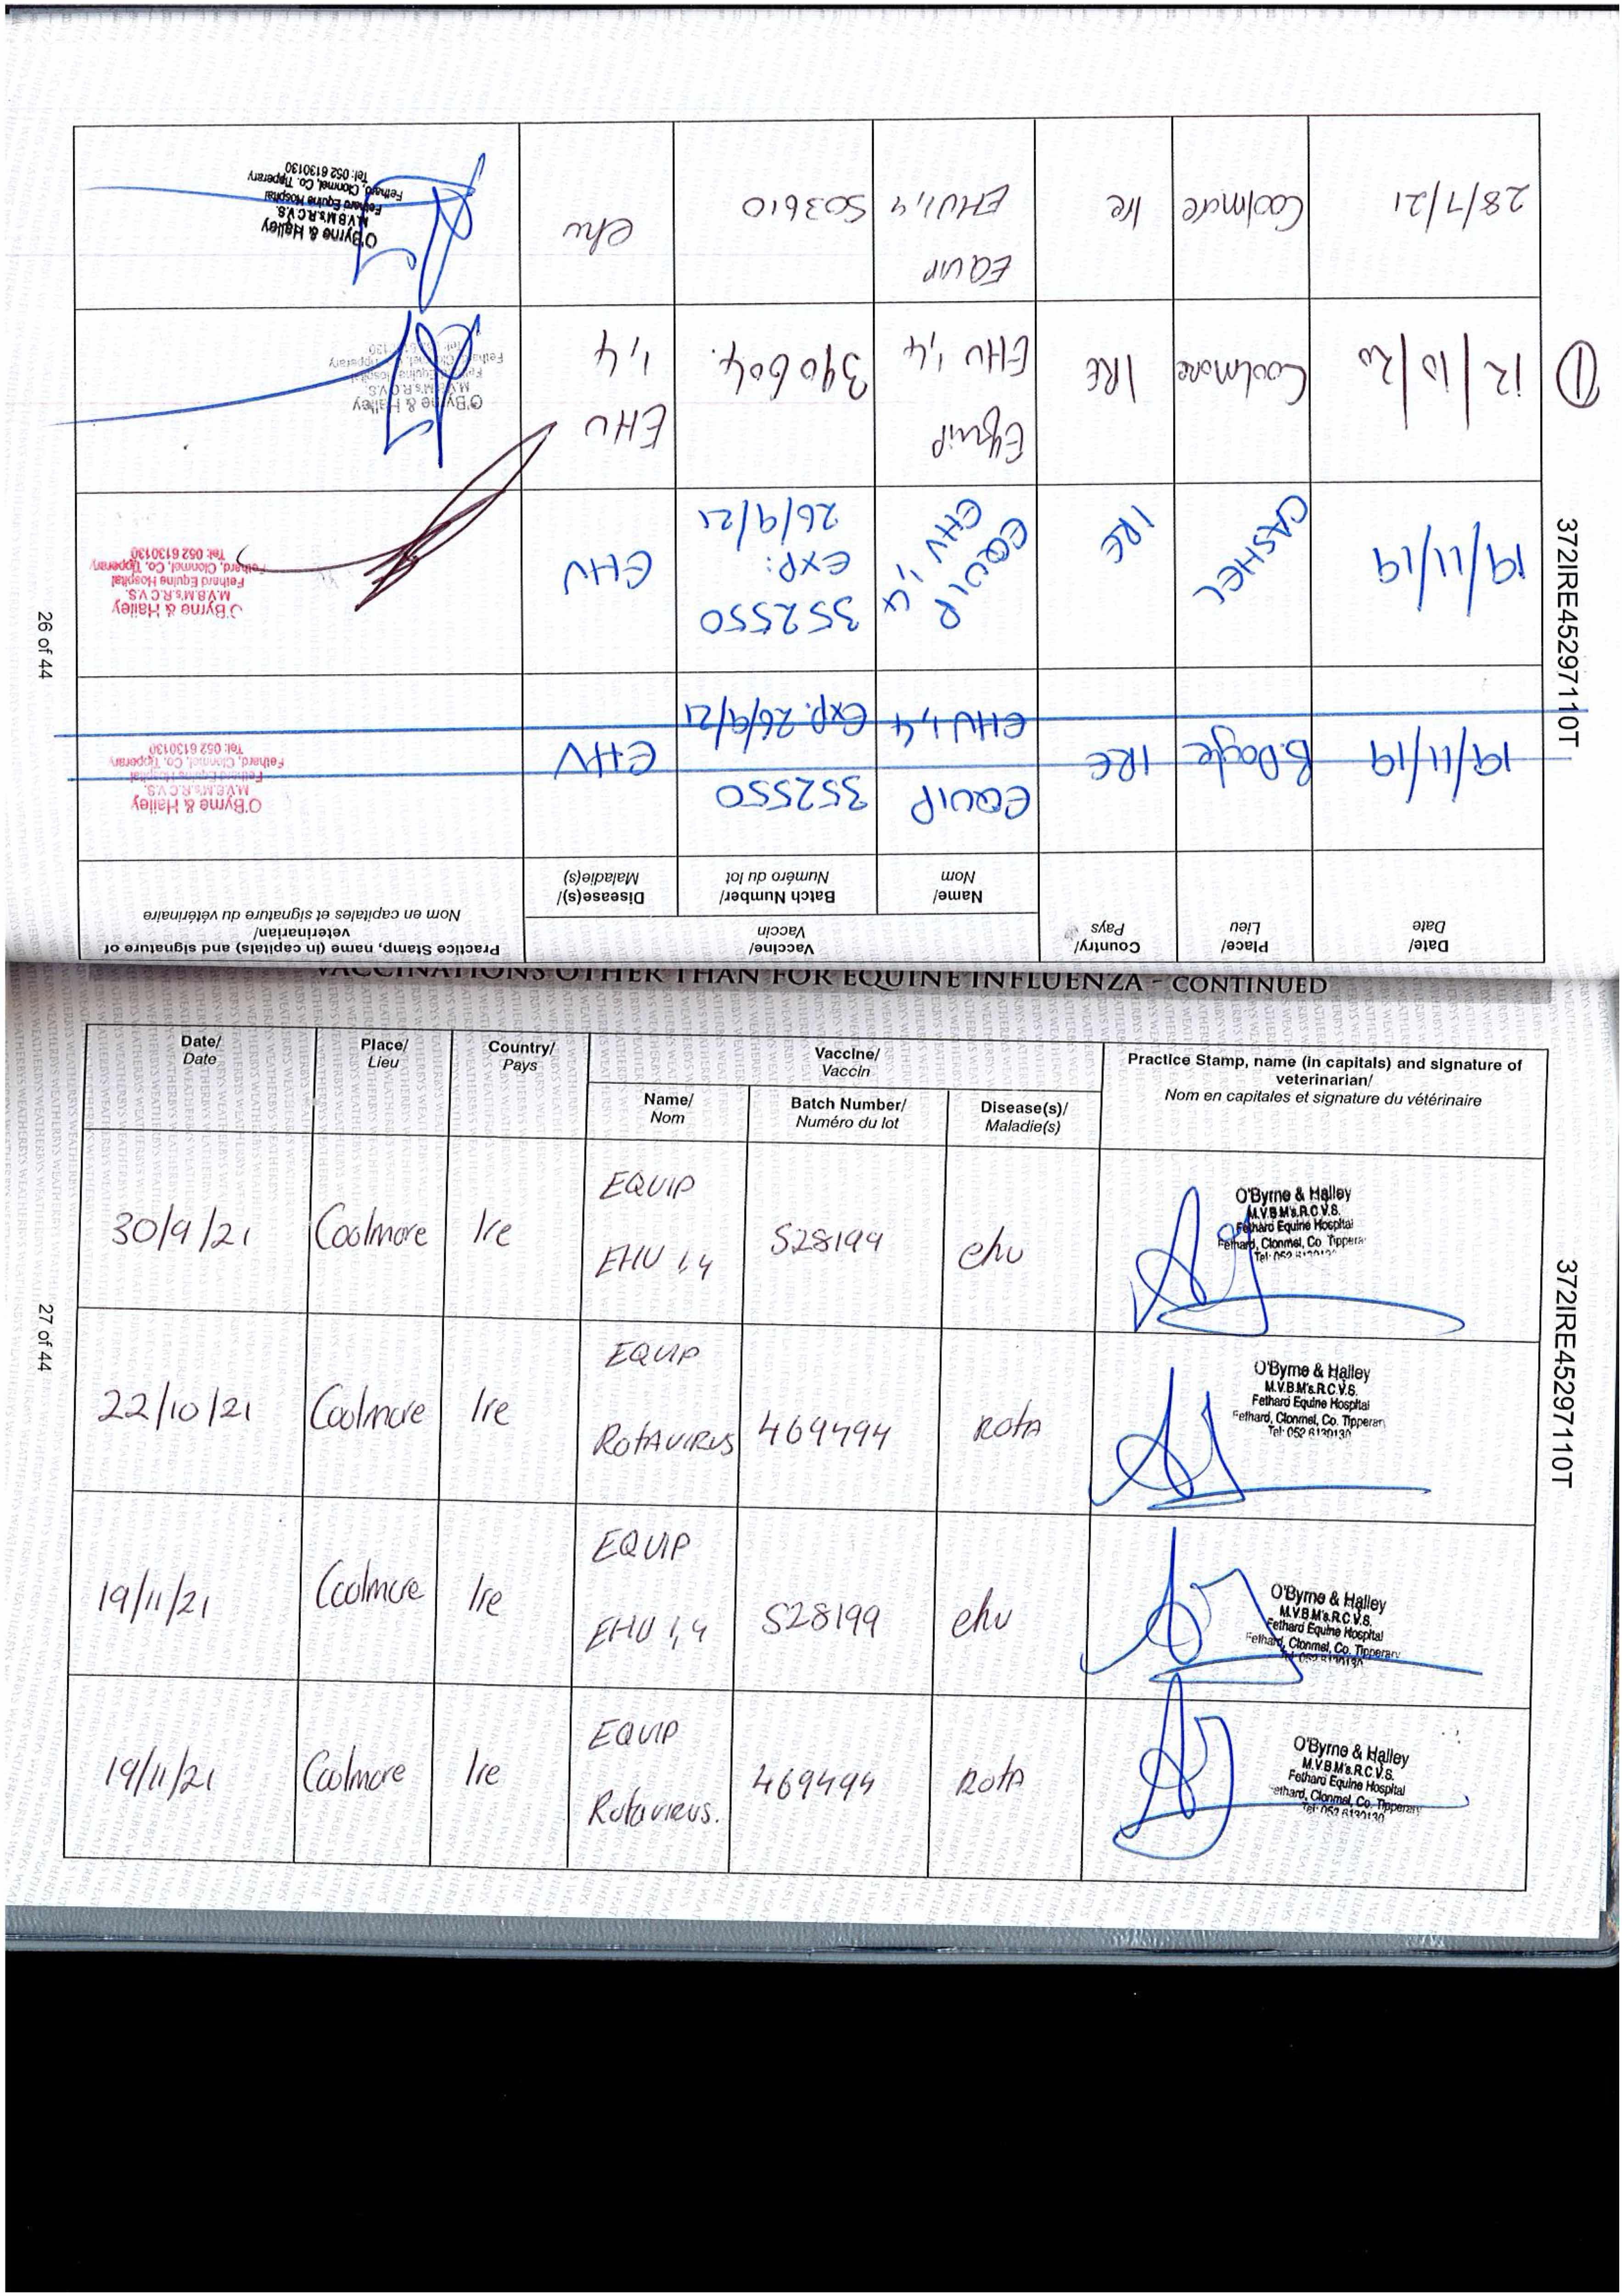 Date/
Date
Place/
Lieu
Country/
Pays
Vaccine/
Vaccin
Name/
Nom
Batch Number/
Numéro du lot
Disease(s)/
Maladie(s)
Practice Stamp, name (in capitals) and signature of
veterinarian/
Nom en capitales et signature du vétérinaire
19/11/19
B.Doyle
IRE
EQUIP
EHV 1,4
352550
Exp. 26/9/21
EHV
O'Byrne & Halley
M.V.B.M's.R.C.V.S.
Fethard Equine Hospital
Fethard, Clonmel, Co. Tipperary
Tel: 052 6130130
19/11/19
CASHEL
IRE
EQUIP
EHV 1,4
352550
EXP:
26/9/21
EHV
O'Byrne & Halley
M.V.B.M's.R.C.V.S.
Fethard Equine Hospital
Fethard, Clonmel, Co. Tipperary
Tel: 052 6130130
1
12/10/20
Coolmore
IRE
Equip
EHV 1,4
390604.
EHV
1,4
O'Byrne & Halley
M.V.B.M's.R.C.V.S.
28/7/21
Coolmore
Ire
EQUIP
EHV1,4
S03610
ehv
O'Byrne & Halley
M.V.B.M's.R.C.V.S.
Fethard Equine Hospital
Fethard, Clonmel, Co. Tipperary
Tel: 052 6130130
26 of 44
372IRE45297110T
VACCINATIONS OTHER THAN FOR EQUINE INFLUENZA - CONTINUED
Date/
Date
Place/
Lieu
Country/
Pays
Vaccine/
Vaccin
Name/
Nom
Batch Number/
Numéro du lot
Disease(s)/
Maladie(s)
Practice Stamp, name (in capitals) and signature of
veterinarian/
Nom en capitales et signature du vétérinaire
30/9/21
Coolmore
Ire
EQUIP
EHV 1,4
S28199
ehv
O'Byrne & Halley
M.V.B.M's.R.C.V.S.
Fethard Equine Hospital
Fethard, Clonmel, Co. Tippera
22/10/21
Coolmore
Ire
EQUIP
ROTAVIRUS
469494
ROTA
O'Byrne & Halley
M.V.B.M's.R.C.V.S.
Fethard Equine Hospital
Fethard, Clonmel, Co. Tipperary
Tel: 052 6130130
19/11/21
Coolmore
Ire
EQUIP
EHV 1,4
S28199
ehv
O'Byrne & Halley
M.V.B.M's.R.C.V.S.
Fethard Equine Hospital
Fethard, Clonmel, Co. Tipperary
Tel: 052 6130130
19/11/21
Coolmore
Ire
EQUIP
Rotavirus.
469494
ROTA
O'Byrne & Halley
M.V.B.M's.R.C.V.S.
Fethard Equine Hospital
Fethard, Clonmel, Co. Tipperary
Tel: 052 6130130
27 of 44
372IRE45297110T